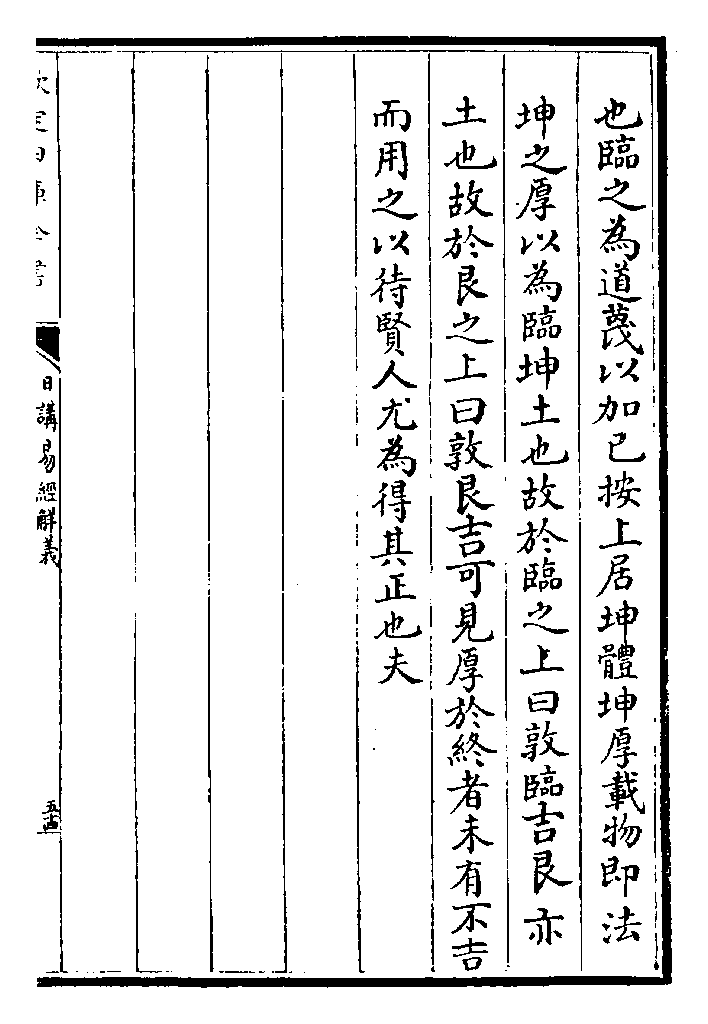 也臨之為道蔑以加已按上居坤體坤厚載物即法
坤之厚以為臨坤土也故於臨之上曰敦臨吉艮亦
土也故於艮之上曰敦艮吉可見厚於終者未有不吉
而用之以待賢人尤為得其正也夫
欽定四庫全書
日講易經解義
五十四